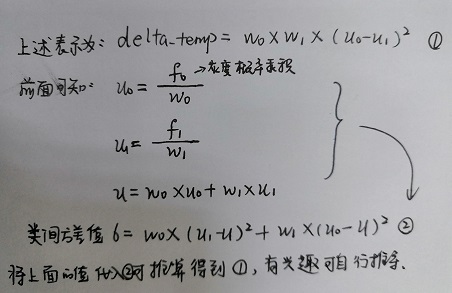 上述表示为: delta-temp = w₀ × w₁ × (u₀-u₁)² ①
前面可知: u₀ = f₀/w₀ →灰度概率乘积
u₁ = f₁/w₁
u = w₀ × u₀ + w₁ × u₁
类间方差值 6 = w₀ × (u₁-u)² + w₁ × (u₀-u)² ②
将上面的值代入②可推算得到①, 有兴趣可自行推导.